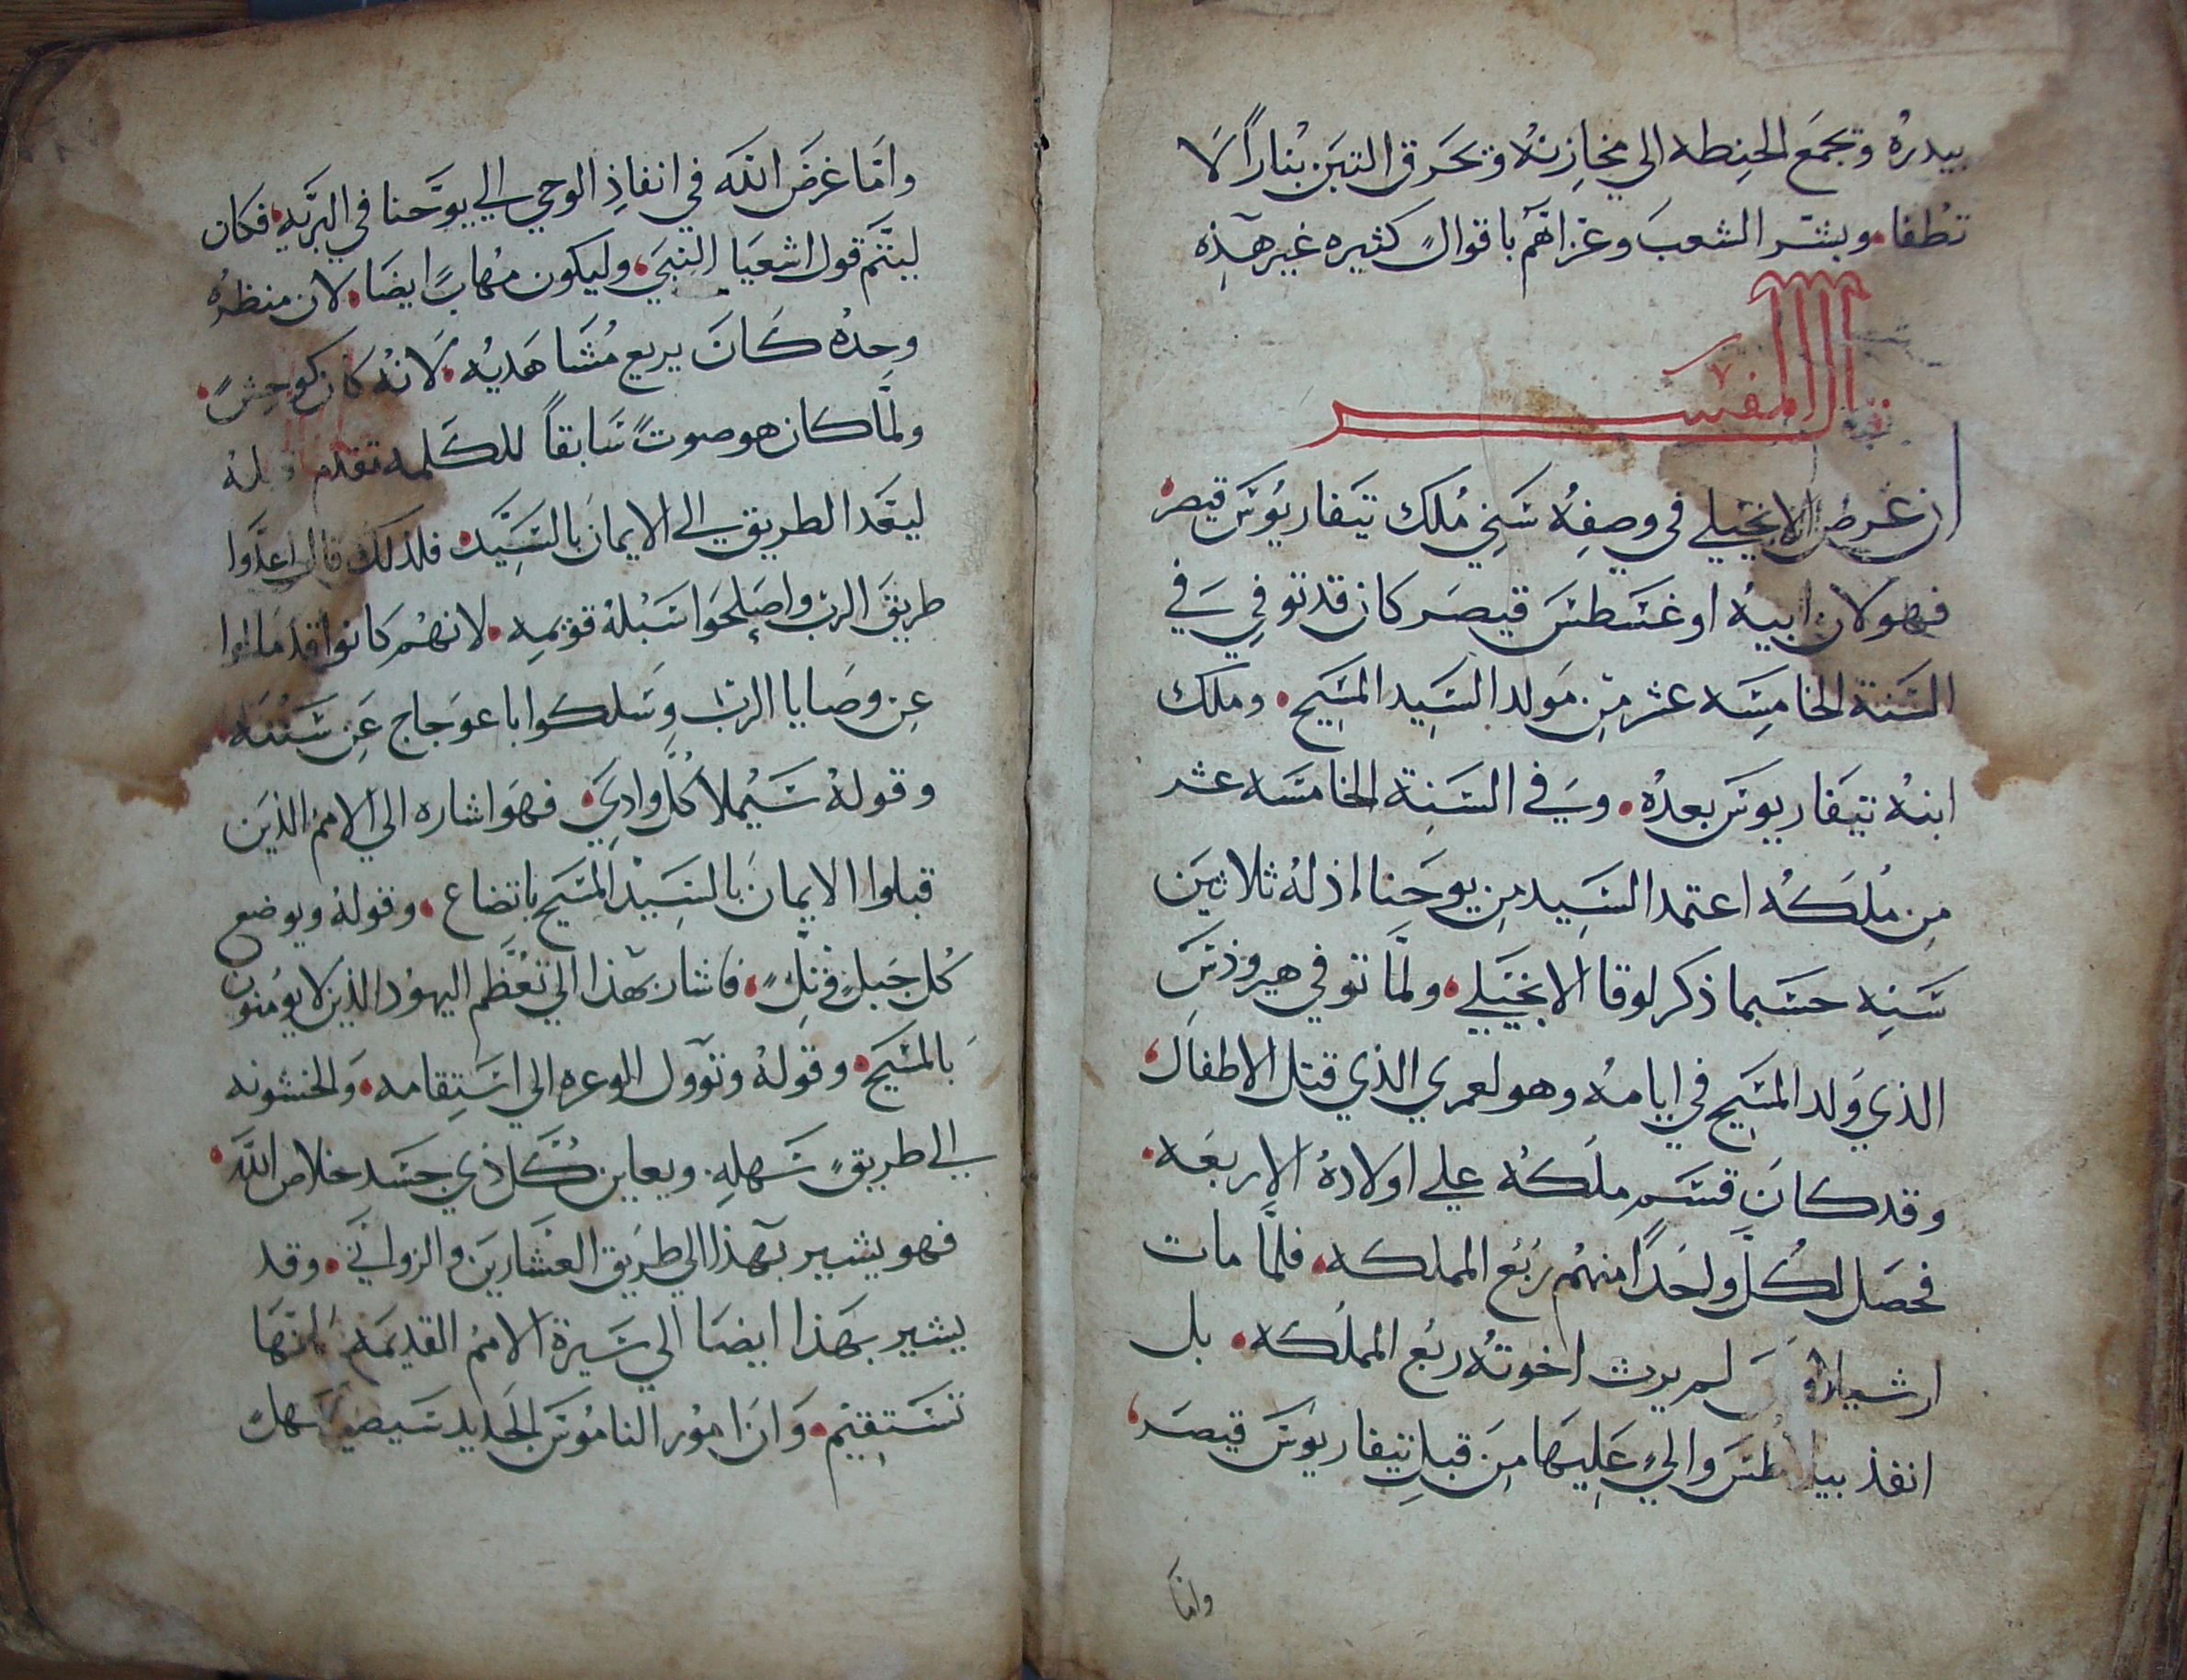 بيدرهُ وتجمَع الحِنطه الي مخازِنهُ وتحَرق التبَن بُناراً لَا
تُطفا. وبشر الشعبَ وعزاهَم باقوالٍ كثيره غير هَذِه
قال المفسر
ان غرض الانجيلي في وصفِهُ سَني مُلك تيَفاريوُسَ قيصر
فهو لان ابيهُ اوغسَطسَ قيصَر كان قد توفي في
السَنة الخامِسَه عشر مِن مَولد السَيد المسَيح. وملك
ابنهُ تيَفاريوسَ بعدهُ. وفي السَنِة الخامسَه عشر
مِن مُلكهُ اعتمد السَيد مِن يوحَنا اذ لهُ ثلاثِين
سَنِه حسَبما ذكر لوقا الانجيَلي. ولمَا توفي هيروذسَ
الذي وَلد المسَيح في ايامهُ وهو لعمري الذي قتل الاطفال
وقد كانَ قسَم ملَكهُ علي اولادهُ الاربعَه.
فحصَل لكُلَ واحَداً منهُم رُبَع المملكه. فلمَا مات
ارشيلاوسَ لم يرث اخوتهُ ربُع المملَكه. بل
انفذ بيلاطُسَ واليٍ عَليهَا مِن قبلِ تيفاريوسَ قيصَر
وامَا
وامَا غرضَ اللَه في انفاذِ الوحي الي يوَحنا في البرَيهِ فكان
ليتَم قول اشعيَا النبَي. وليكون مُهابً ايضَا. لان منظرهُ
وحِدهُ كَانَ يريع مُشَاهَديُه. لَانهُ كان كوحِشً
ولمَا كان هو صوتً سَابقاً للكَلمه تقدم
ليعَد الطريق الي الايمان بالسَيَد. فلذلك قال اعدَوا
طريقَ الرب واصَلحَوا سَبُلهُ قويمِه. لانهُم كانوا قد مالوا
عِن وصَايا الرب وسَلكوا باعوَجاج عَن سَنُنَه
وقولهُ سَيُملا كُلَ واديَ. فهوَ اشاره الي الامم الذيَن
قبلوا الايمانَ بالسَيِدْ المسَيح باتضاع. وقولهُ ويوضع
كُل جَبلٍ وتلٍ. فاشار بهَذا الي تعُظَم اليهوُد الذين لا يوُمنون
بَالمسَيَح. وقولهُ وتوَول الوعره الي استِقامه. وَالخشونه
الي طريقٍ سَهلهِ. ويعاين كُلَ ذي جسَد خلاص اللَه.
فهو يشير بهَذا الي طرَيق العشَارين والزواني. وقد
يشير بهَذا ايضَا الي سَيرة الامم القديمَه انهَا
تسَتِقيم. وَانَ امُور النامُوسَ الجَديد سَيصَير سَهلٍ